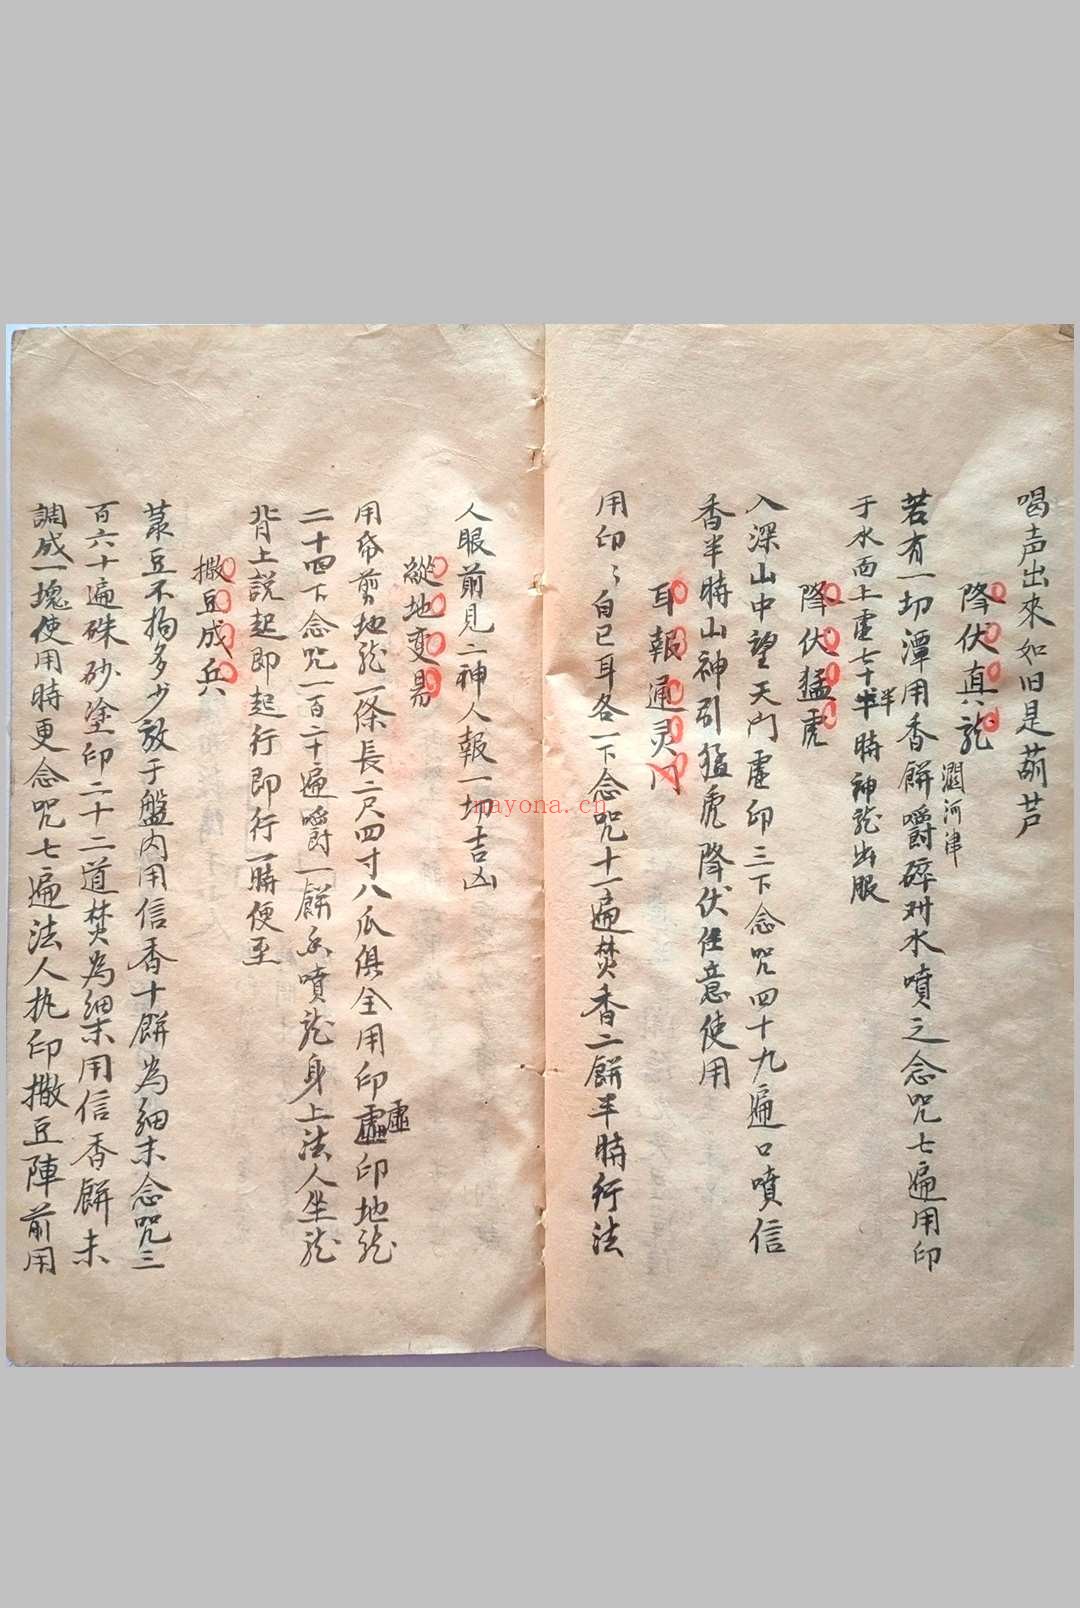 喝声出來如旧是葫芦
降伏真龍
若有一切潭用香餅嚼碎对水噴之念咒七遍用印
澗河津
于水面上虛七十半時神龍出服
半
降伏猛虎
入深山中望天門虛印三下念咒四十九遍口噴信
香半時山神引猛虎降伏任意使用
耳報通灵
用印〻自已耳各一下念咒十一遍焚香二餅半時行法
人眼前見二神人報一切吉凶
縱地變易
用帋剪地龍一條長二尺四寸八爪俱全用印虛印地龍
虛
二十四下念咒一百二十遍嚼一餅香噴龍身上法人坐龍
背上説起即起行即行一時便至
撒豆成兵
菉豆不拘多少放于盤内用信香十餅為細末念咒三
百六十遍硃砂塗印二十二道焚為細末用信香餅末
調成一塊使用時更念咒七遍法人执印撒豆陣前用
nayona.cn